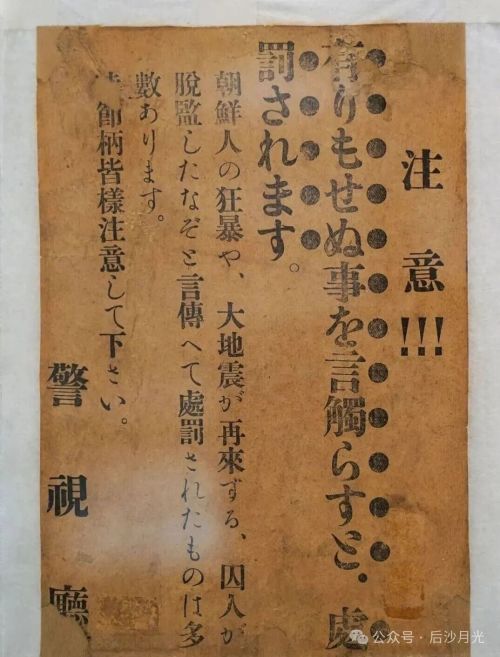 注意!!!
有りもせぬ事を言觸らすと、處
罰されます。
朝鮮人の狂暴や、大地震が再來する、囚人が
脫監したなぞと言傳へて處罰されたものは多
數あります。
時節柄皆樣注意して下さい。
警視廳
公众号 · 后沙月光